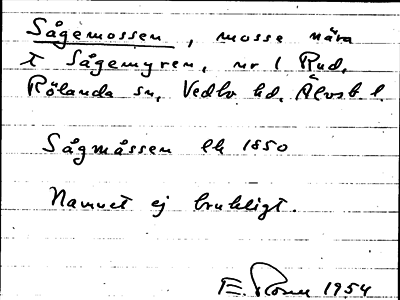 Sågemossen, mosse nära
t Sågemyren, nr 1 Rud,
Rölanda sn, Vedbo hd, Älvsb. l.
Sågmåssen lh 1850
Namnet ej brukligt.
E. 1954